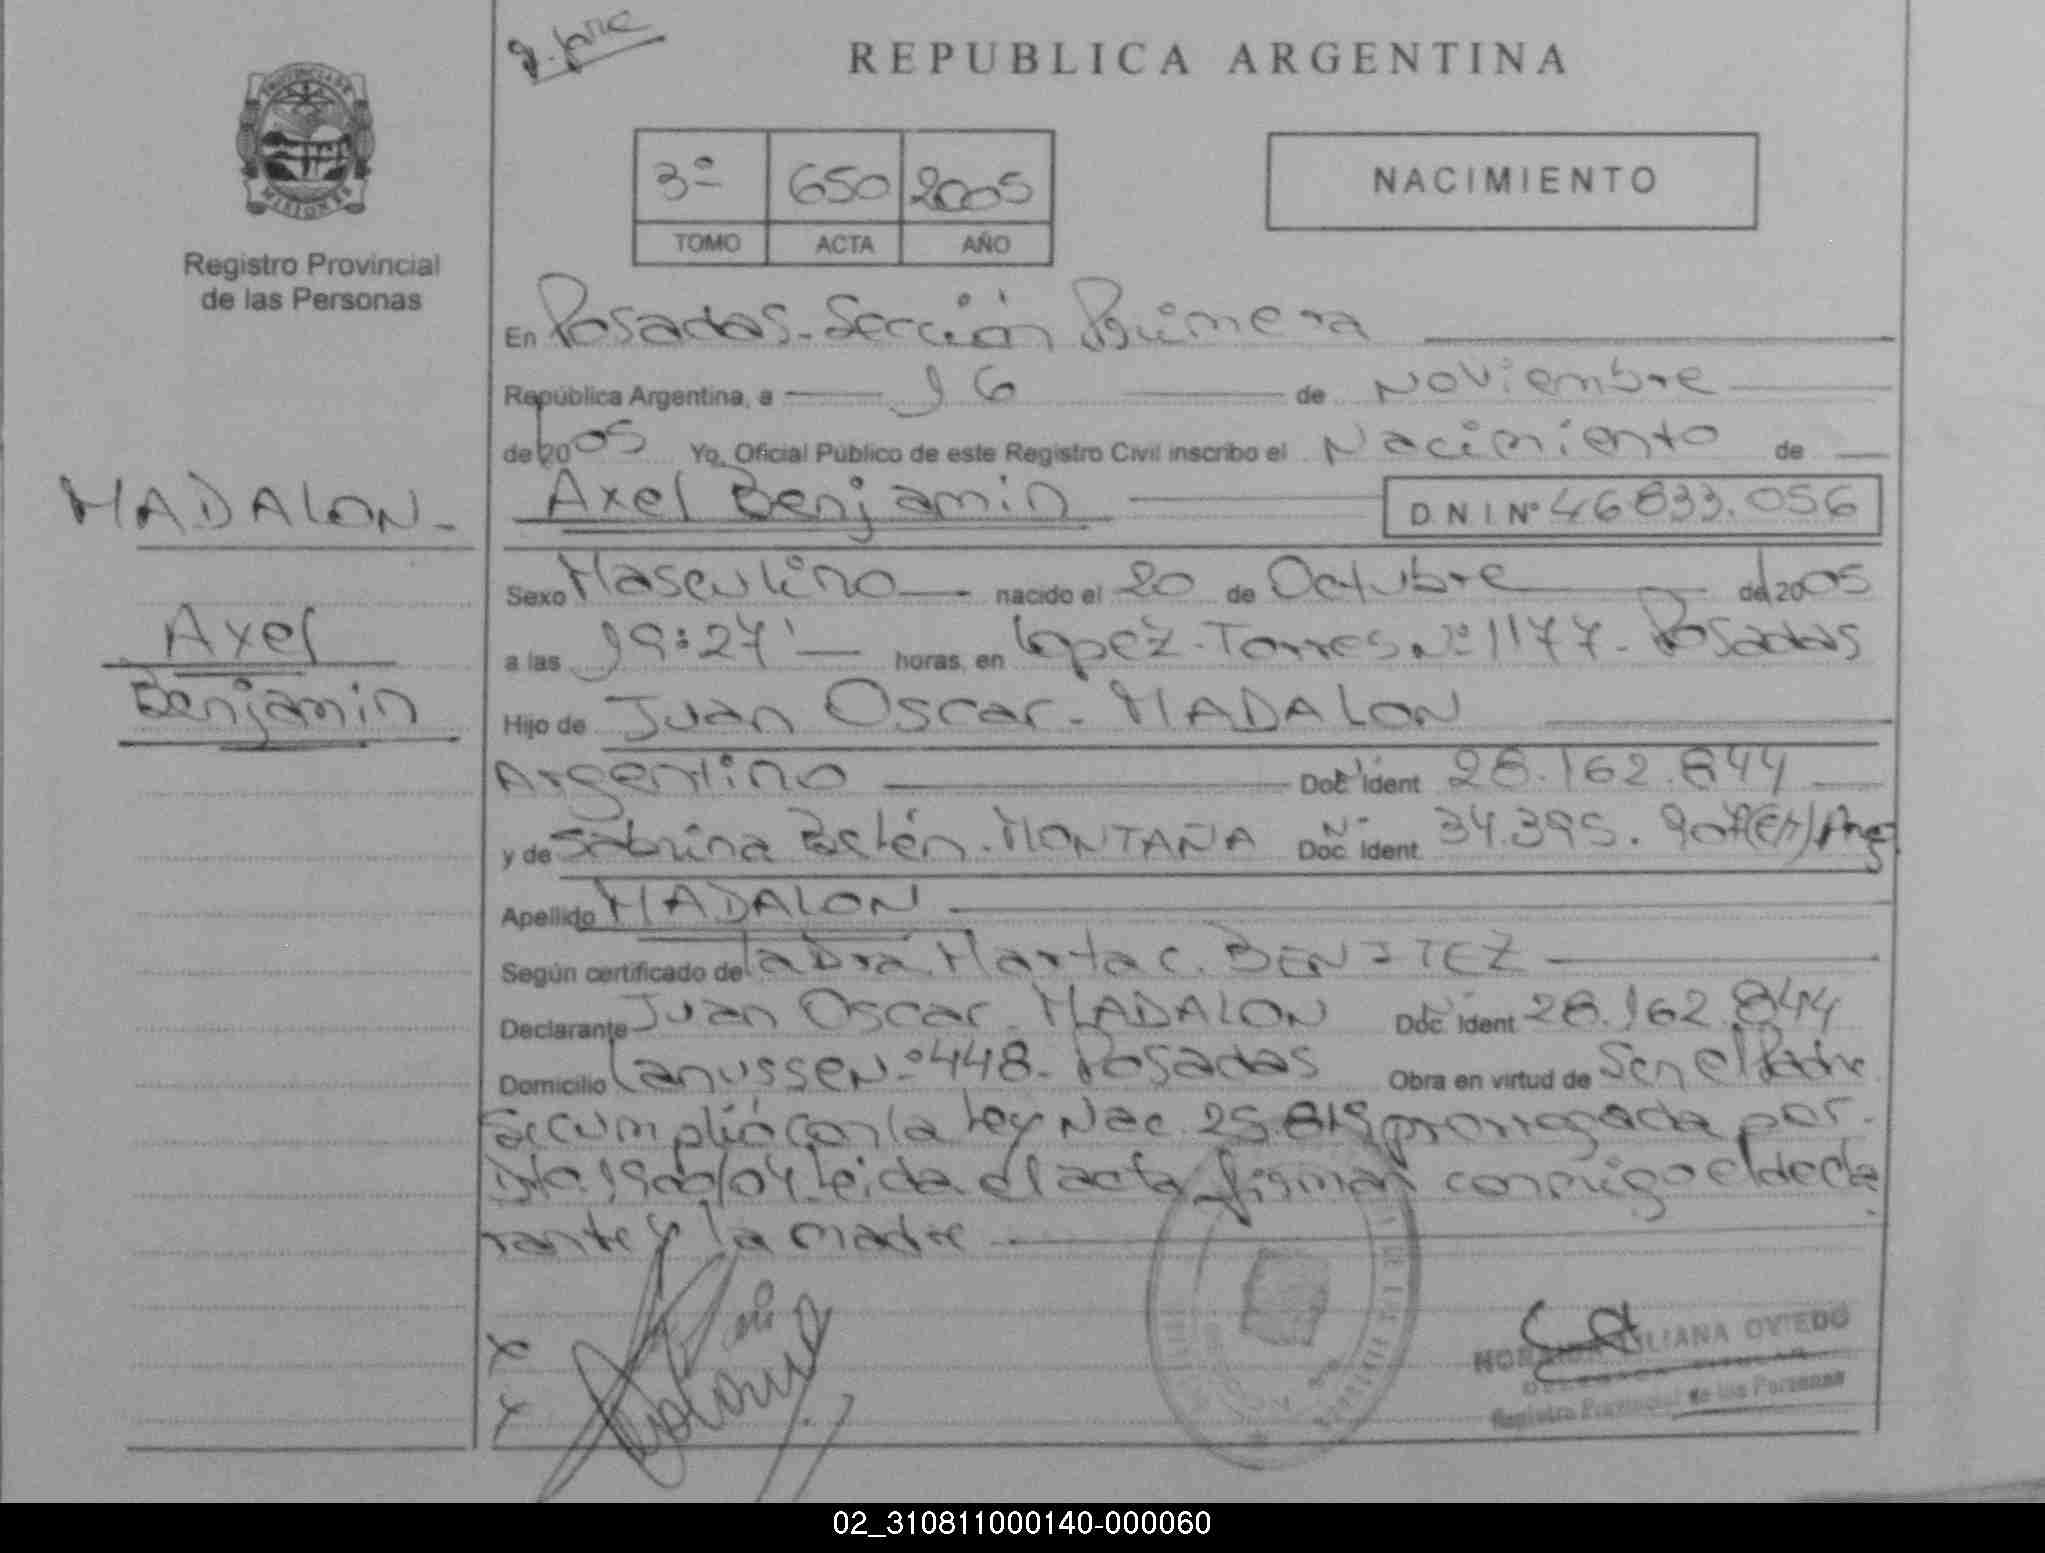 REPUBLICA ARGENTINA
PROVINCIA DE
MISIONES
Registro Provincial
de las Personas
3º 650 2005
TOMO ACTA AÑO
NACIMIENTO
En Posadas - Sección Primera
República Argentina, a 16 de Noviembre
de 2005 Yo, Oficial Público de este Registro Civil inscribo el Nacimiento de
MADALON -
Axel Benjamin D.N.I Nº 46833.056
Sexo Masculino nacido el 20 de Octubre de 2005
Axel
Benjamin
a las 19:27' horas, en Lopez Torres Nº 1177 - Posadas
Hijo de Juan Oscar - MADALON
Argentino Doc. Ident 28.162.844
y de Sabrina Belén - MONTAÑA Nº Doc. Ident. 34.395.907(EH) Arg
Apellido MADALON
Según certificado de la Dra Marta C. BENITEZ
Declarante Juan Oscar - MADALON Doc. Ident 28.162.844
Domicilio Lanusse Nº 448 - Posadas Obra en virtud de Ser el Padre
Se cumplió con la Ley Nac. 25.819 prorrogada por
Dto. 1900/04 Leida el acta firman conmigo el decla
rante y la madre
X
X
LILIANA OVIEDO
Registro Provincial de las Personas
02_310811000140-000060